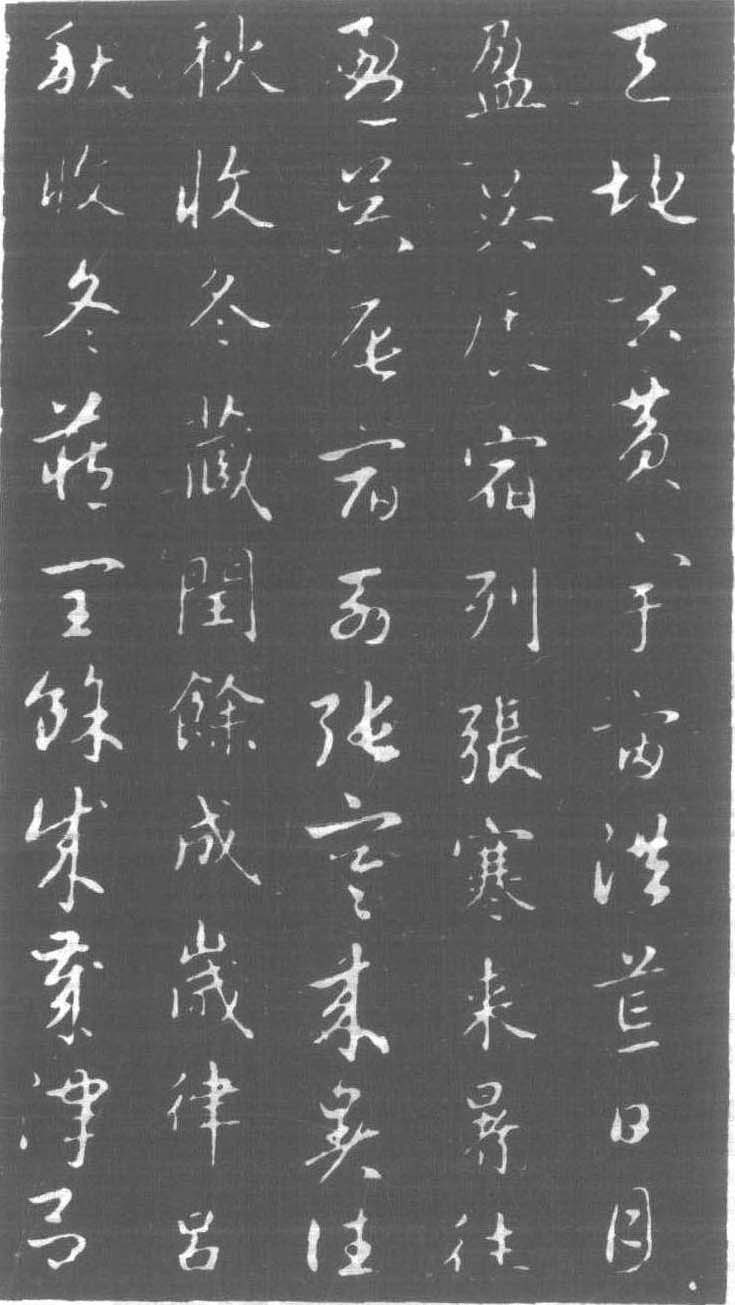 天地玄黄宇宙洪荒日月
盈昃辰宿列張寒来暑往
盈昃辰宿列張寒来暑往
秋收冬藏閏餘成歲律呂
秋收冬藏閏餘成歲律呂